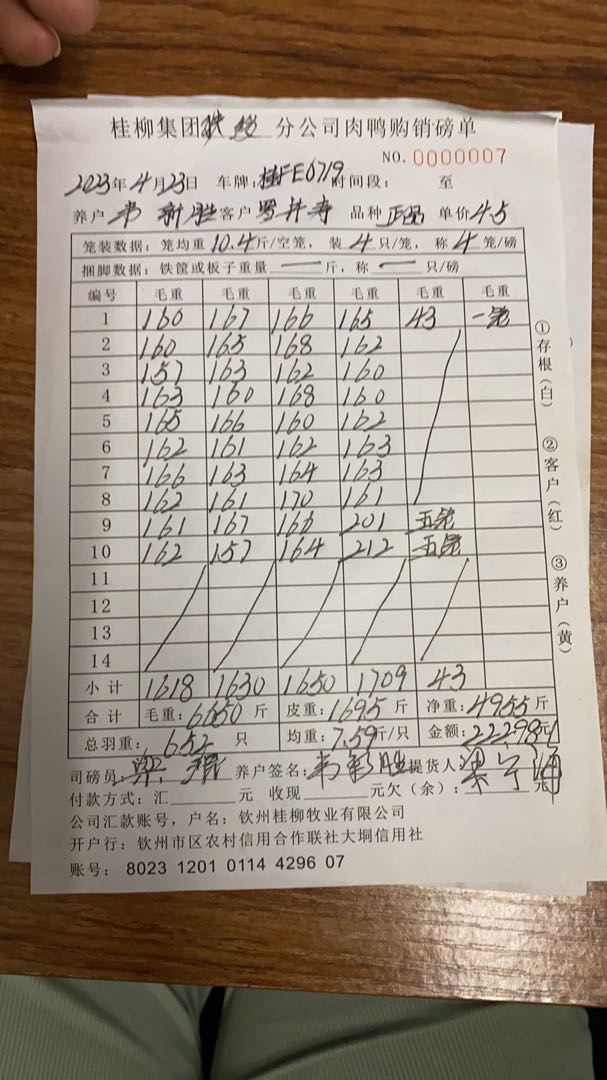 桂柳集团 分公司肉鸭购销磅单
NO. 0000007
2023年4月23日 车牌:桂FE6719 时间段: 至
养户 韦新胜 客户 品种 正品 单价 4.5
笼装数据: 笼均重 10.4 斤/空笼, 装 4 只/笼, 称 4 笼/磅
捆脚数据: 铁筐或板子重量 — 斤, 称 — 只/磅
编号 毛重 毛重 毛重 毛重 毛重 毛重
1 160 167 166 165 43 一笼
2 160 165 168 162
3 157 163 162 160
4 163 160 168 160
5 165 166 160 162
6 162 161 162 163
7 166 163 164 163
8 162 161 170 161
9 161 167 166 201 五笼
10 162 157 164 212 五笼
11
12
13
14
小计 1618 1630 1650 1709 43
合计 毛重: 6650 斤 皮重: 1695 斤 净重: 4955 斤
总羽重: 652 只 均重: 7.59 斤/只 金额: 22298 元
司磅员: 养户签名: 韦新胜 提货人:
付款方式: 汇 元 收现 元欠(余): 元
公司汇款账号, 户名: 钦州桂柳牧业有限公司
开户行: 钦州市区农村信用合作联社大垌信用社
账号: 8023 1201 0114 4296 07
①存根(白) ②客户(红) ③养户(黄)